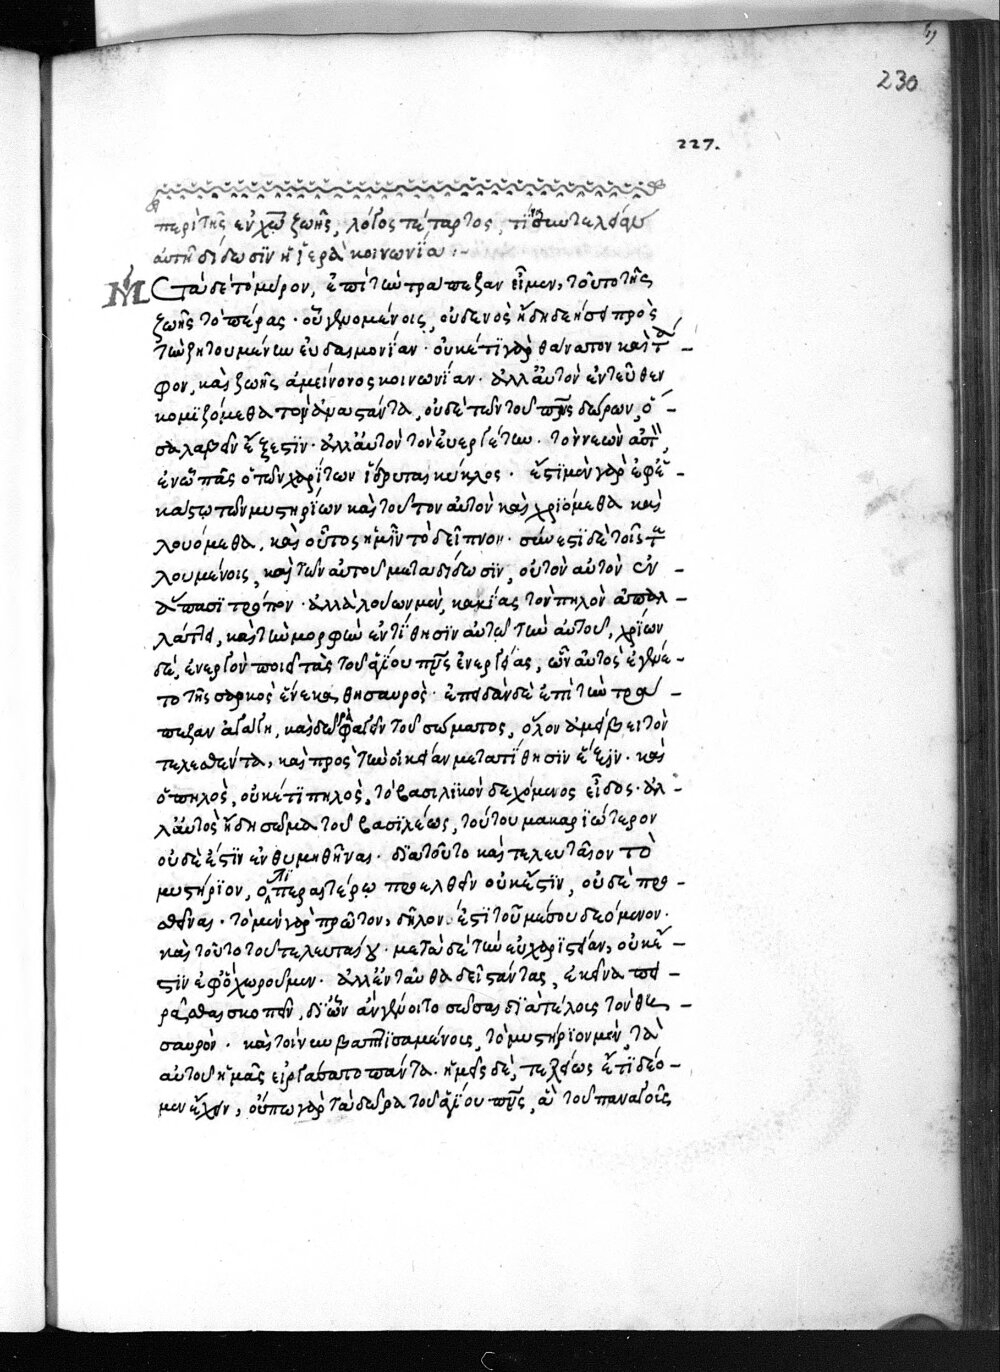 230
227.
περὶ τῆς ἐν χῶ ζωῆς, λόγος τέταρτος, τίνα συντέλειαν
αὐτῆ δίδωσϊν ἡ ἱερὰ κοινωνΐα :-
Μετὰ δὲ τὸ μύρον, ἐπὶ τὴν τράπεζαν εἶμεν, τοῦτο τῆς
ζωῆς τὸ πέρας· οὗ γενομένοις, οὐδενὸς ἤδη δεήσει πρὸς
τὴν ζητουμένην εὐδαιμονΐαν· οὐκέτι γὰρ θάνατον καὶ τά-
φον, καὶ ζωῆς ἀμείνονος κοινωνΐαν· ἀλλ' αὐτὸν ἐντεῦθεν
κομϊζόμεθα τὸν ἀναστάντα, οὐδὲ τῶν τοῦ πνς δώρων, ὅ-
σα λαβεῖν ἔξεστϊν· ἀλλ' αὐτὸν τὸν εὐεργέτην· τὸν νεὼν αὐτὸν,
ἐν ᾧ πᾶς ὁ τῶν χαρΐτων ἵδρυται κύκλος· ἔστϊ μὲν γὰρ ἐφ' ἑ-
κάστω τῶν μυστηρΐων καὶ τοῦτον αὐτὸν καὶ χρϊόμεθα καὶ
λουόμεθα, καὶ οὗτος ἡμῖν τὸ δεῖπνον· σύνεστϊ δὲ τοῖς τε-
λουμένοις, καὶ τῶν αὐτοῦ μεταδίδωσϊν, οὐ τὸν αὐτὸν ἐν
ἅπασϊ τρόπον· ἀλλὰ λούων μὲν, κακΐας τὸν πηλὸν ἀπαλ-
λάττει, καὶ τὴν μορφὴν ἐντΐθησϊν αὐτῷ τὴν αὐτοῦ, χρΐων
δὲ, ἐνεργὸν ποιεῖ τὰς τοῦ ἁγΐου πνς ἐνεργείας, ὧν αὐτὸς ἐγένε-
το τῆς σαρκὸς ἕνεκα θησαυρός· ἐπειδὰν δὲ ἐπὶ τὴν τρά-
πεζαν ἀγάγη, καὶ δῷ φαγεῖν τοῦ σώματος, ὅλον ἀμείβει τὸν
τελεσθέντα, καὶ πρὸς τὴν οἰκείαν μετατΐθησϊν ἕξιν· καὶ
ὁ πηλὸς, οὐκέτϊ πηλὸς, τὸ βασιλϊκὸν δεχόμενος εἶδος· ἀλ-
λ' αὐτὸς ἤδη σῶμα τοῦ βασϊλέως, τούτου μακαρϊώτερον
οὐδὲ ἔστϊν ἐνθυμηθῆναι· διὰ τοῦτο καὶ τελευταῖον τὸ
μυστήρϊον, ὅτι περαιτέρω προελθεῖν οὐκ ἔστϊν, οὐδὲ προσ-
θεῖναι· τὸ μὲν γὰρ πρῶτον, δῆλον ἐστὶ τοῦ μέσου δεόμενον·
καὶ τοῦτο τοῦ τελευταίου· μετὰ δὲ τὴν εὐχαρϊστίαν, οὐκ ἔ-
στϊν ἐφ' ὃ χωροῦμεν· ἀλλ' ἐνταῦθα δεῖ στάντας, ἐκεῖνα πει-
ρᾶσθαι σκοπεῖν, δϊ' ὧν ἂν γένοιτο σῶσαι δϊὰ τέλους τὸν θη-
σαυρόν· καὶ τοίνυν βαπτϊσαμένοις, τὸ μυστήρϊον μὲν, τὰ
αὐτοῦ ἡμᾶς εἰργάσατο πάντα· ἡμεῖς δὲ, τελείως ἔτϊ δέο-
μεν ἔχειν, οὔπω γὰρ τὰ δῶρα τοῦ ἁγΐου πνς, ἃ τοῦ παναγοῦς